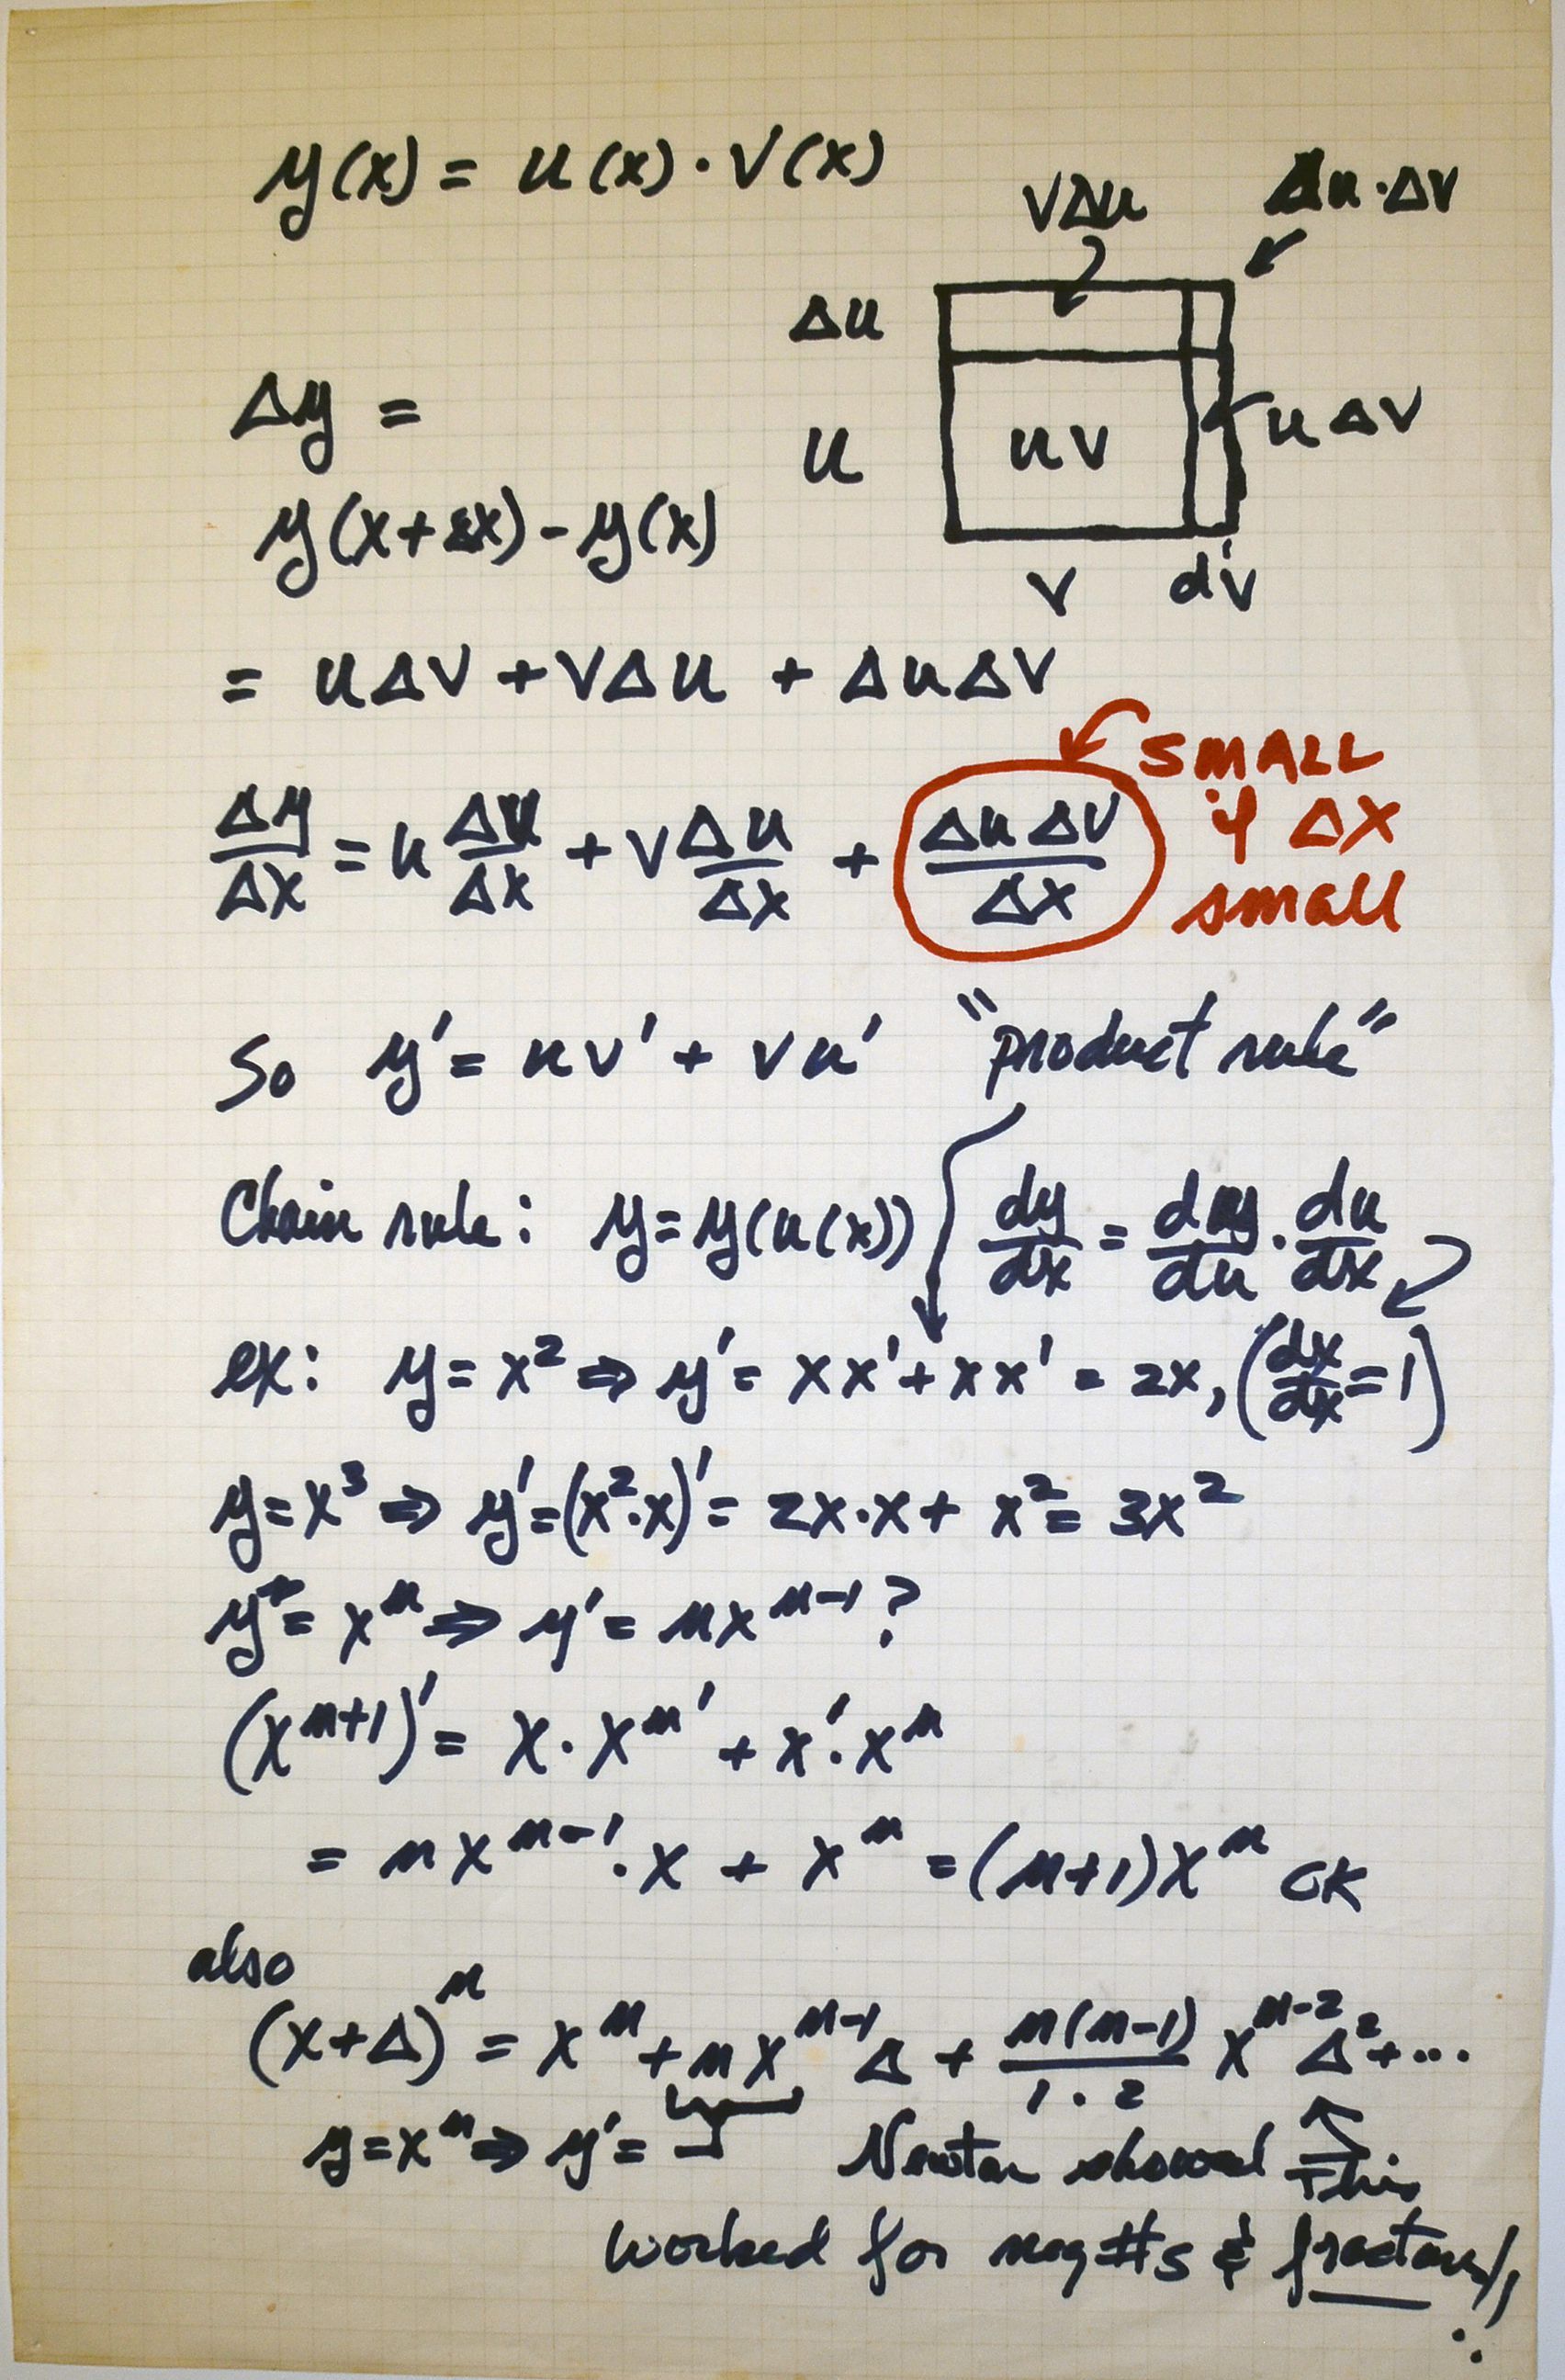 y(x) = u(x)·v(x)
vΔu
Δu·Δv
Δu
Δy =
u
uv
uΔv
y(x+Δx)-y(x)
v
dv
= uΔv + vΔu + ΔuΔv
SMALL
if Δx
small
Δy/Δx = u Δv/Δx + v Δu/Δx + ΔuΔv/Δx
So y' = uv' + vu' "product rule"
Chain rule: y=y(u(x)) dy/dx = dy/du · du/dx
ex: y = x² ⇒ y' = xx' + xx' = 2x, (dx/dx = 1)
y = x³ ⇒ y' = (x²·x)' = 2x·x + x² = 3x²
y = xⁿ ⇒ y' = nxⁿ⁻¹?
(xⁿ⁺¹)' = x·xⁿ' + x'·xⁿ
= nxⁿ⁻¹·x + xⁿ = (n+1)xⁿ OK
also
(x+Δ)ⁿ = xⁿ + nxⁿ⁻¹Δ + n(n-1)/1·2 xⁿ⁻²Δ² + ...
y = xⁿ ⇒ y' = Newton showed This
worked for neg #s & fractions!!